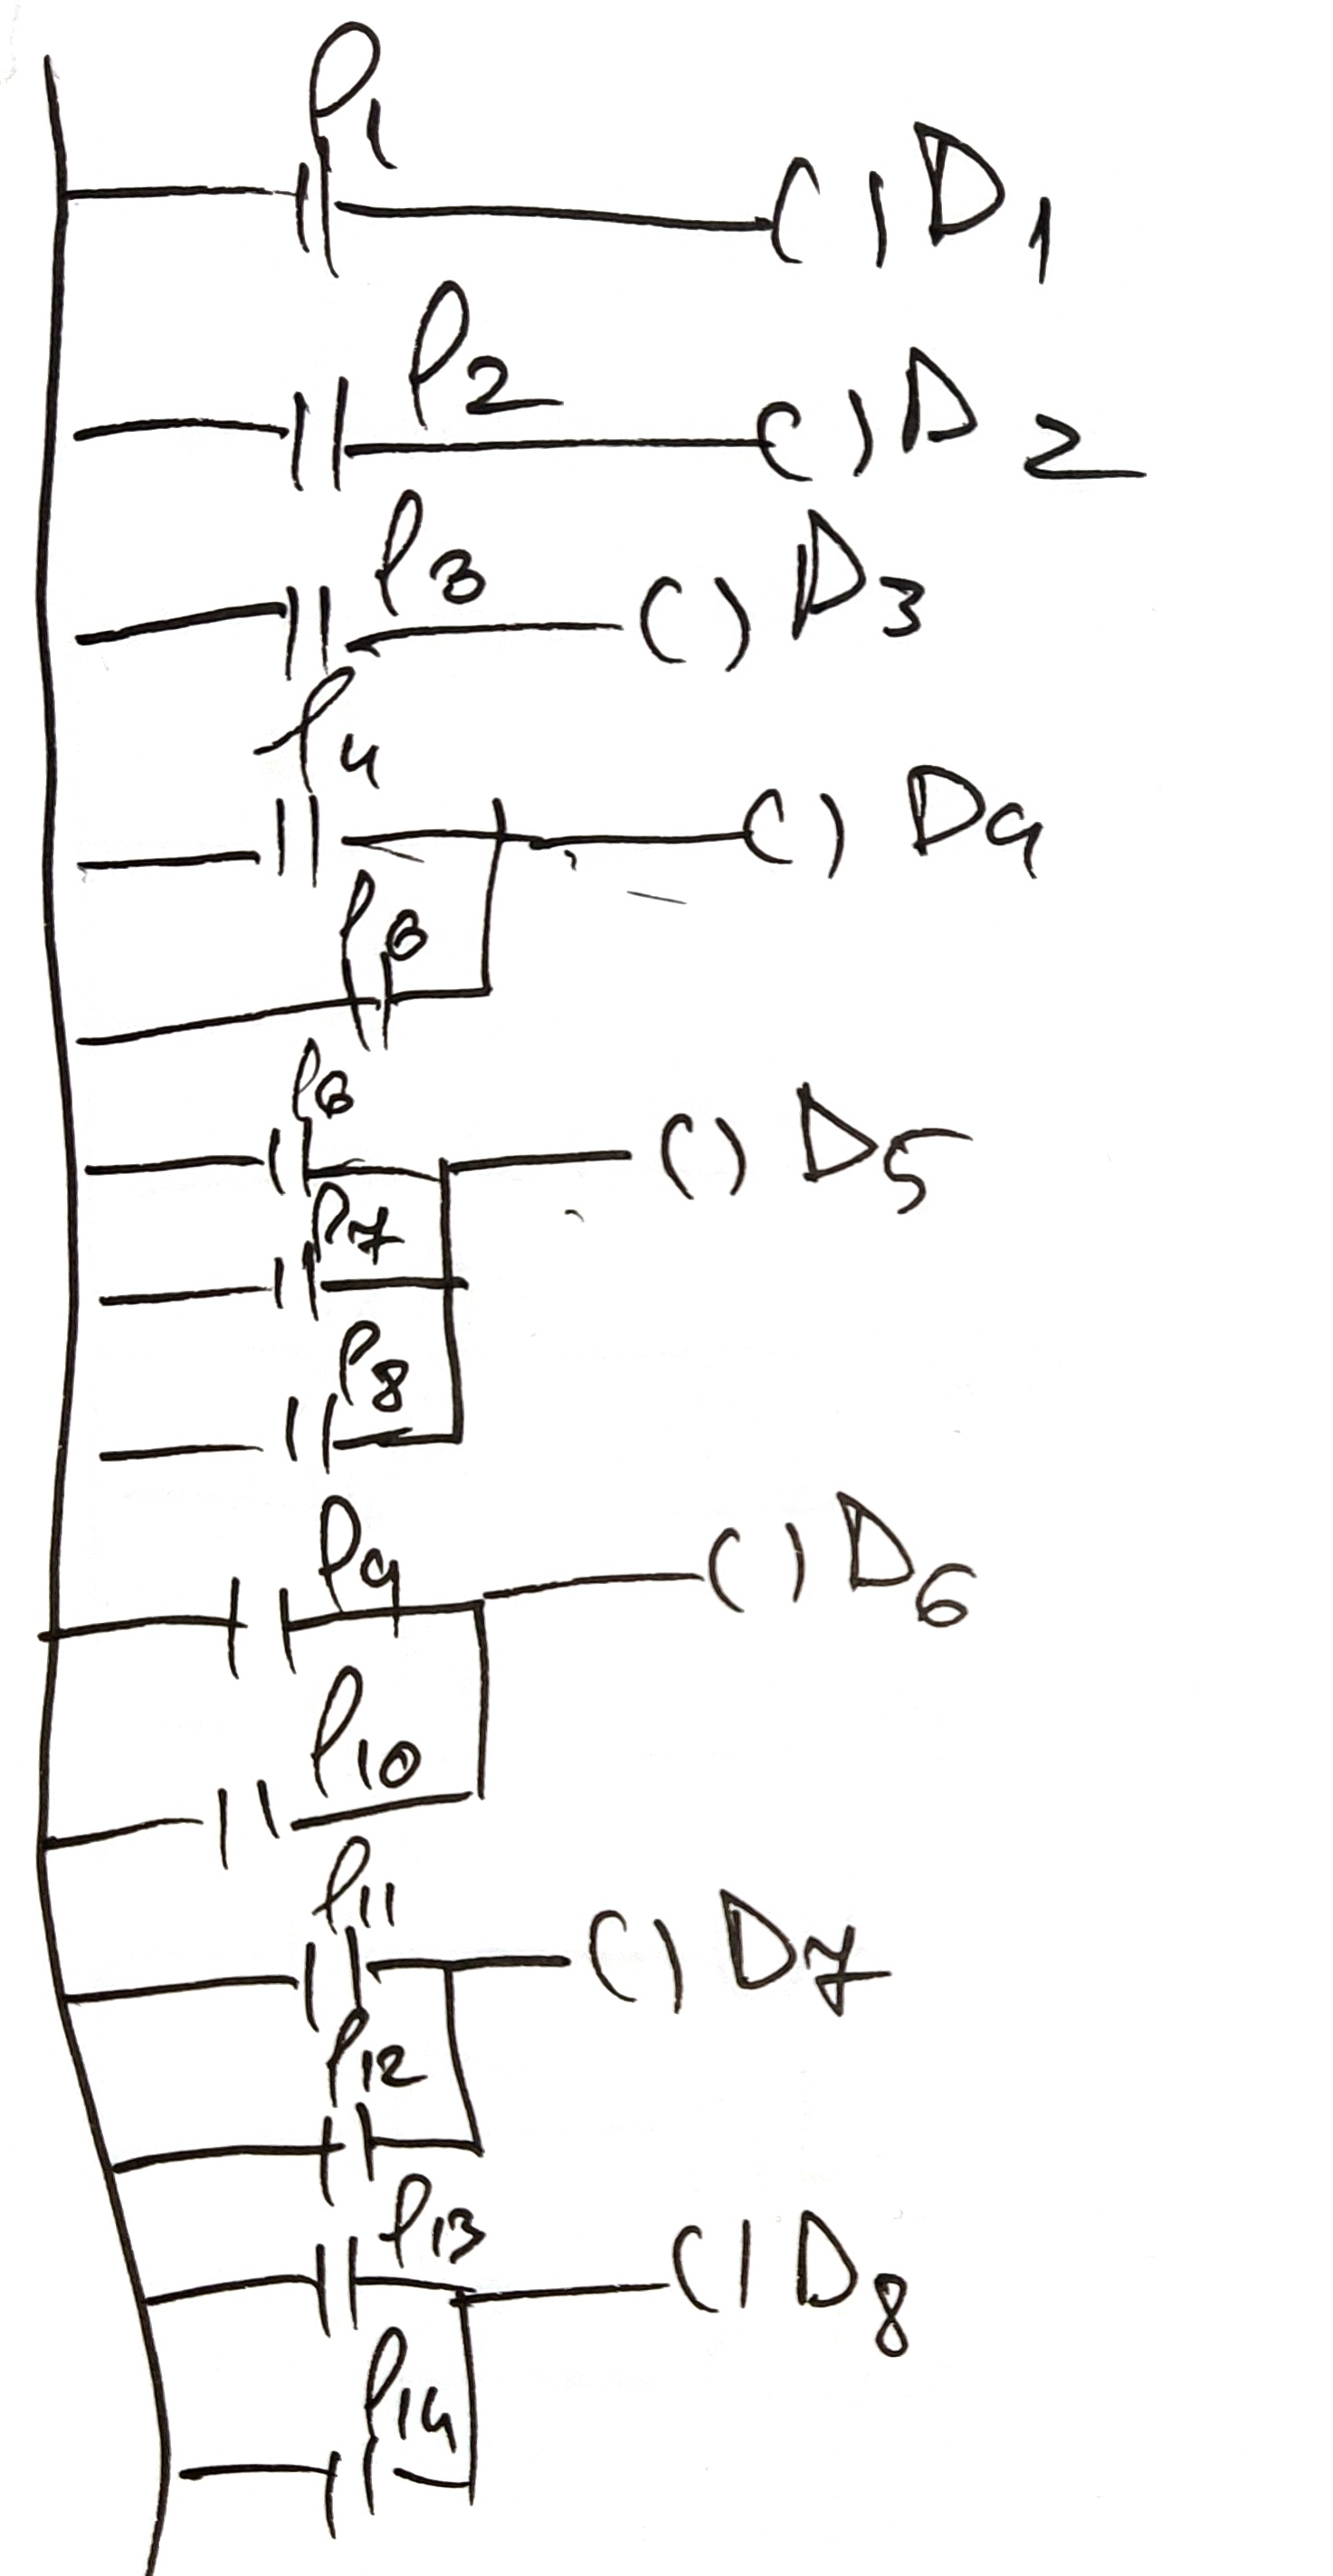 P1
D1
P2
D2
P3
D3
P4
D4
P6
D5
P7
P8
P9
D6
P10
P11
D7
P12
P13
D8
P14